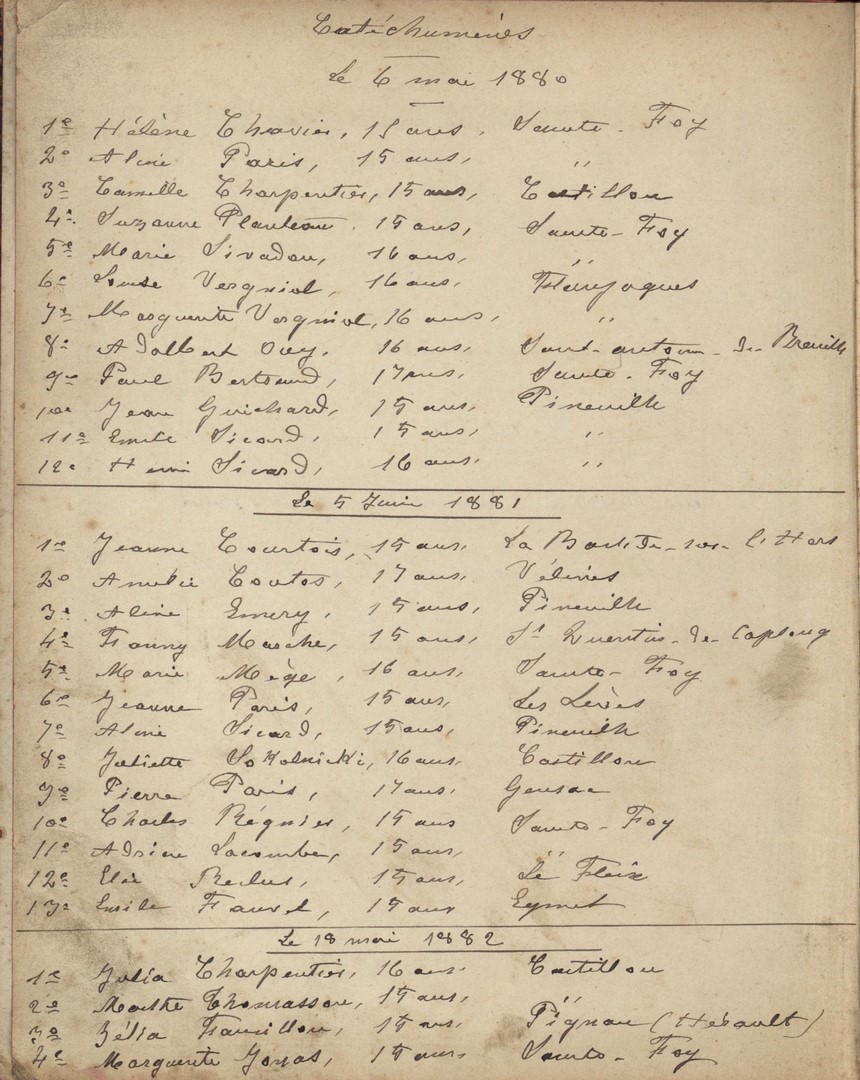 Catéchumènes
Le 6 mai 1880
1º Hélène Chavier, 15 ans, Sainte-Foy
2º Aline Paris, 15 ans, "
3º Camille Charpentier, 15 ans, Castillon
4º Suzanne Planteau, 15 ans, Sainte-Foy
5º Marie Sivadon, 16 ans, "
6º Louise Vergniol, 16 ans, Flaujagues
7º Marguerite Vergniol, 16 ans, "
8º Adalbert 16 ans, Saint-antoine-de-Breuilh
9º Paul Bertrand, 17 ans, Sainte-Foy
10º Jean Guichard, 15 ans, Pineuilh
11º Emile Sicard, 15 ans, "
12º Henri Sicard, 16 ans, "
Le 5 Juin 1881
1º Jeanne Courtois, 15 ans, La Bastide-sur-l'Hers
2º Amélie Coutos, 17 ans, Vélines
3º Aline Emery, 15 ans, Pineuilh
4º Fanny Mache, 15 ans, St Quentin-de-Caplong
5º Marie Mège, 16 ans, Sainte-Foy
6º Jeanne Paris, 15 ans, Les Lèves
7º Aline Sicard, 15 ans, Pineuilh
8º Juliette Sokolnicki, 16 ans, Castillon
9º Pierre Paris, 17 ans, Gensac
10º Charles Régnier, 15 ans Sainte-Foy
11º Adrien Lacombe, 15 ans, "
12º Elie Reclus, 15 ans, Le Fleix
13º Emile Fauvel, 15 ans Eymet
Le 18 mai 1882
1º Julia Charpentier, 16 ans. Castillon
2º Marthe Thomasson, 15 ans, "
3º Zélia 15 ans, Pignan (Hérault)
4º Marguerite Jonas, 15 ans, Sainte-Foy